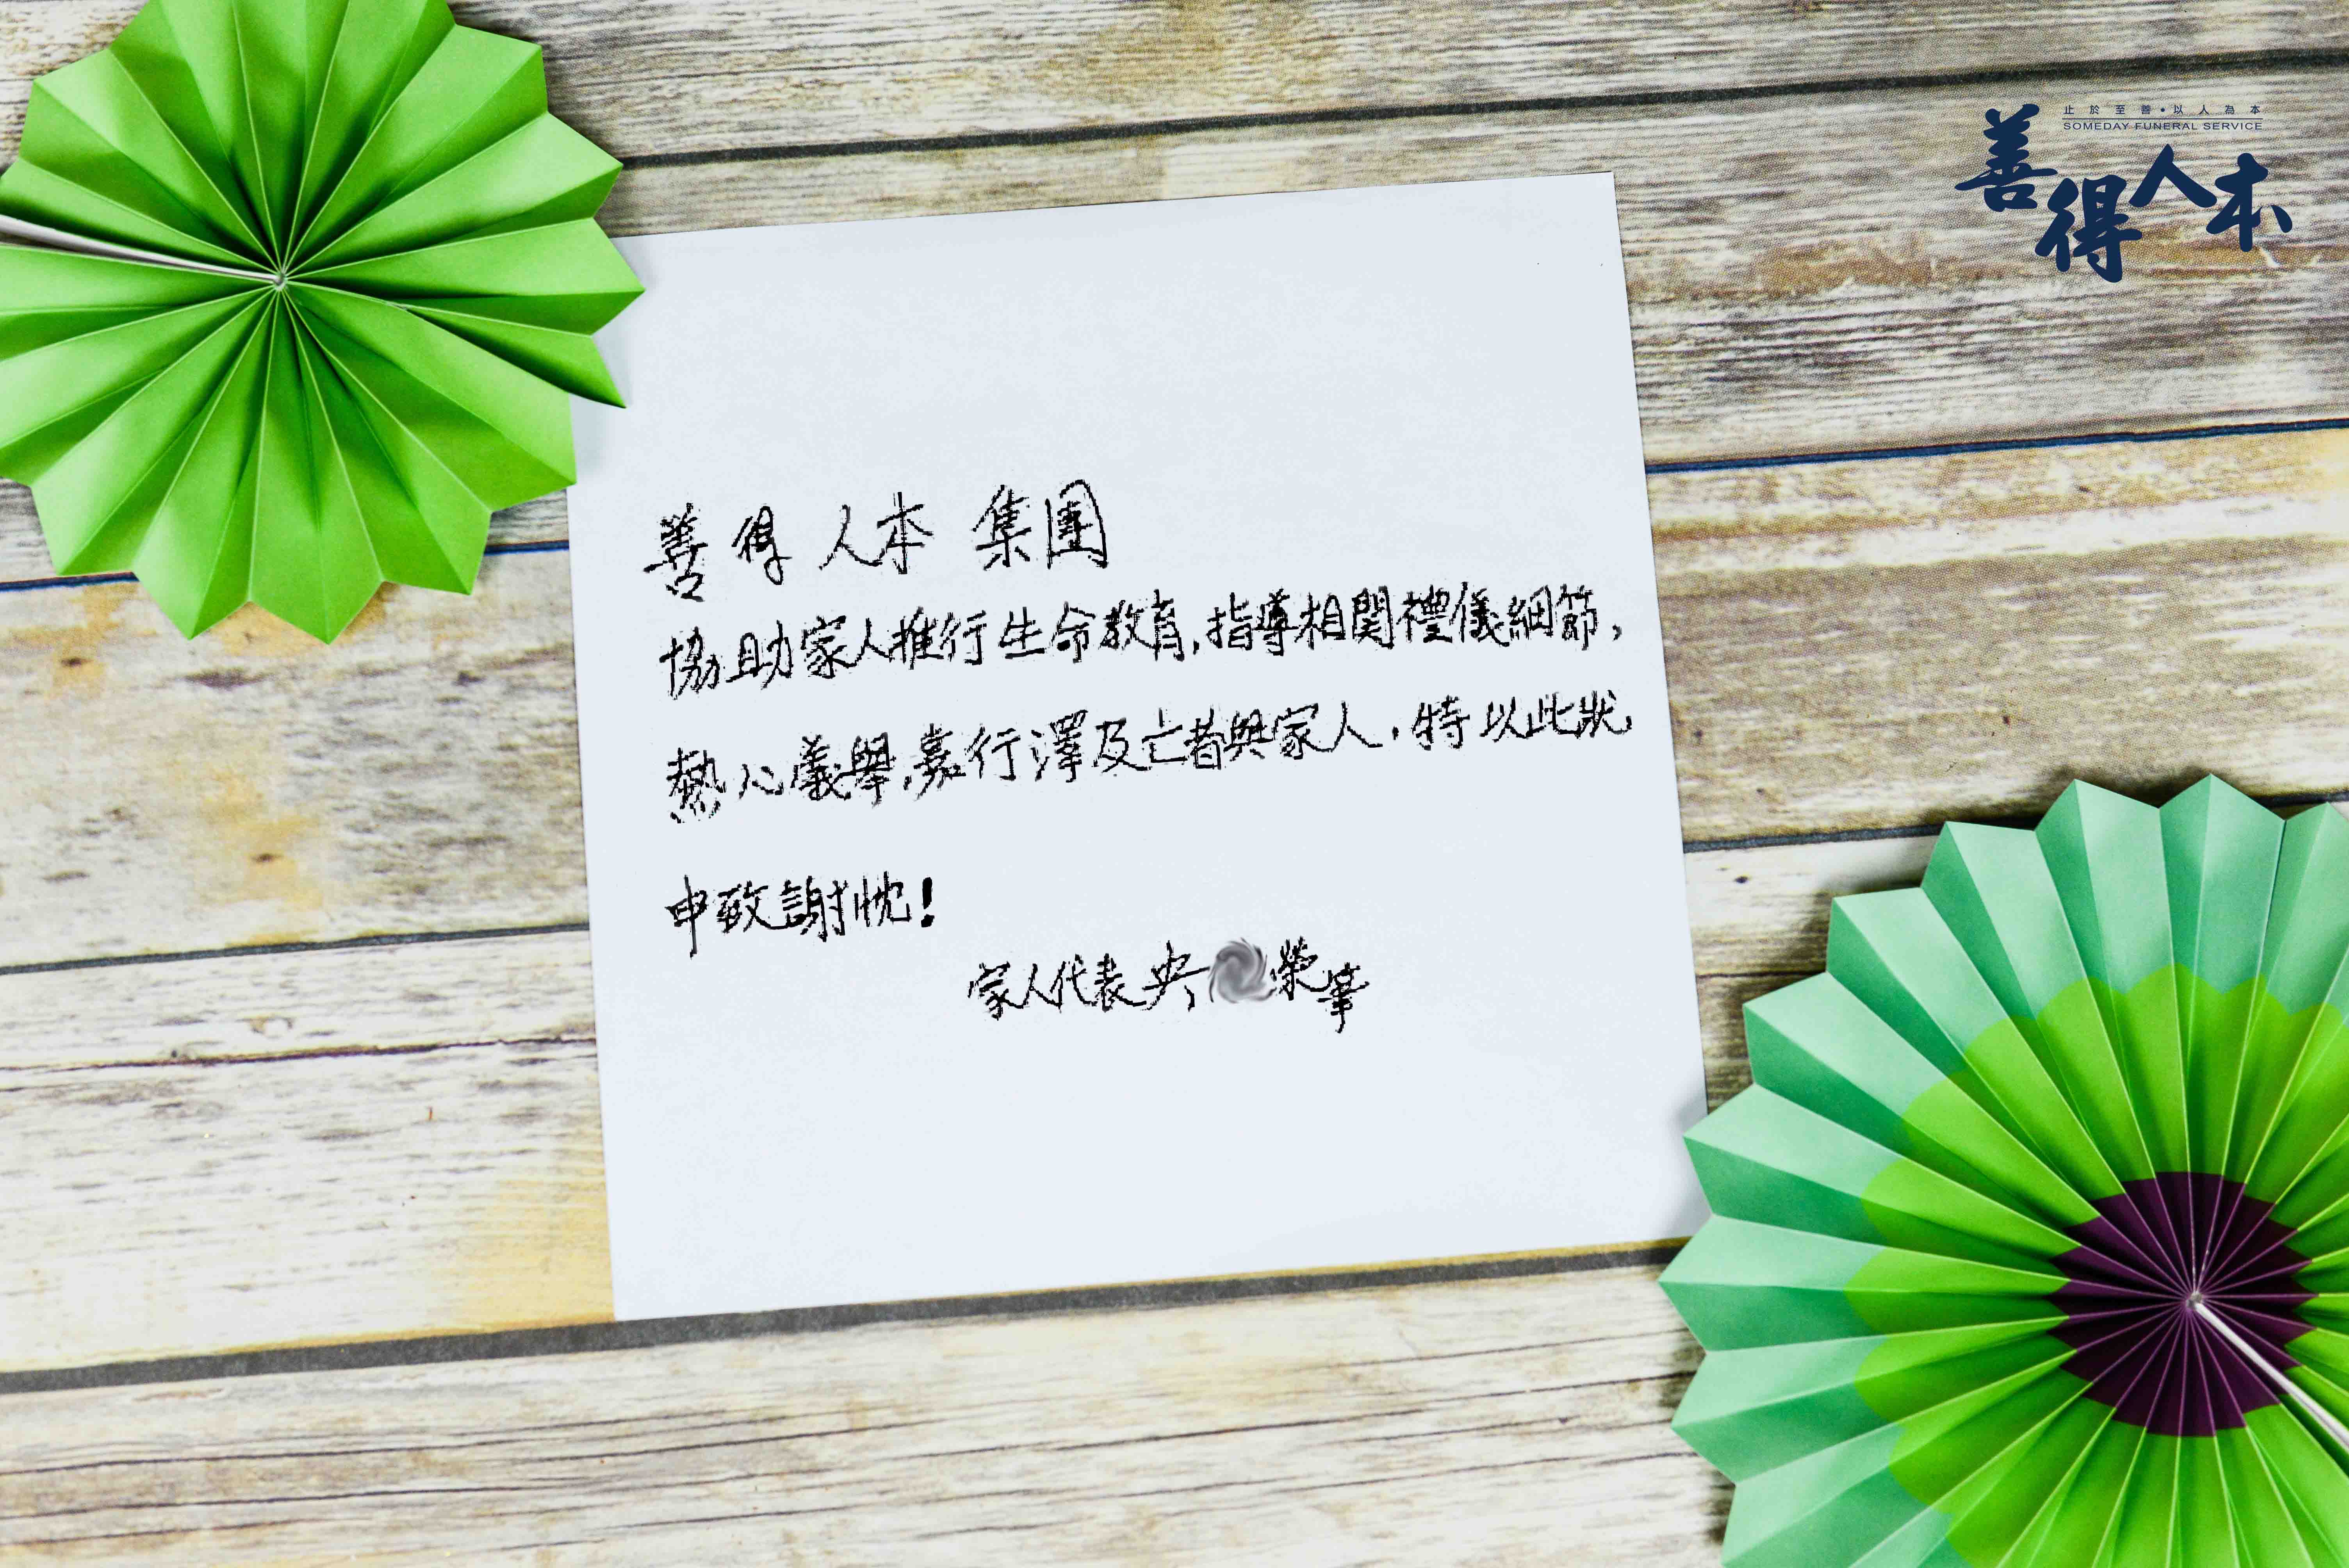 止於至善•以人為本
SOMEDAY FUNERAL SERVICE
善得人本
善得人本 集團
協助家人推行生命教育,指導相関禮儀細節,
熱心義舉,嘉行澤及亡者與家人,特以此狀
申致謝忱!
家人代表 榮筆